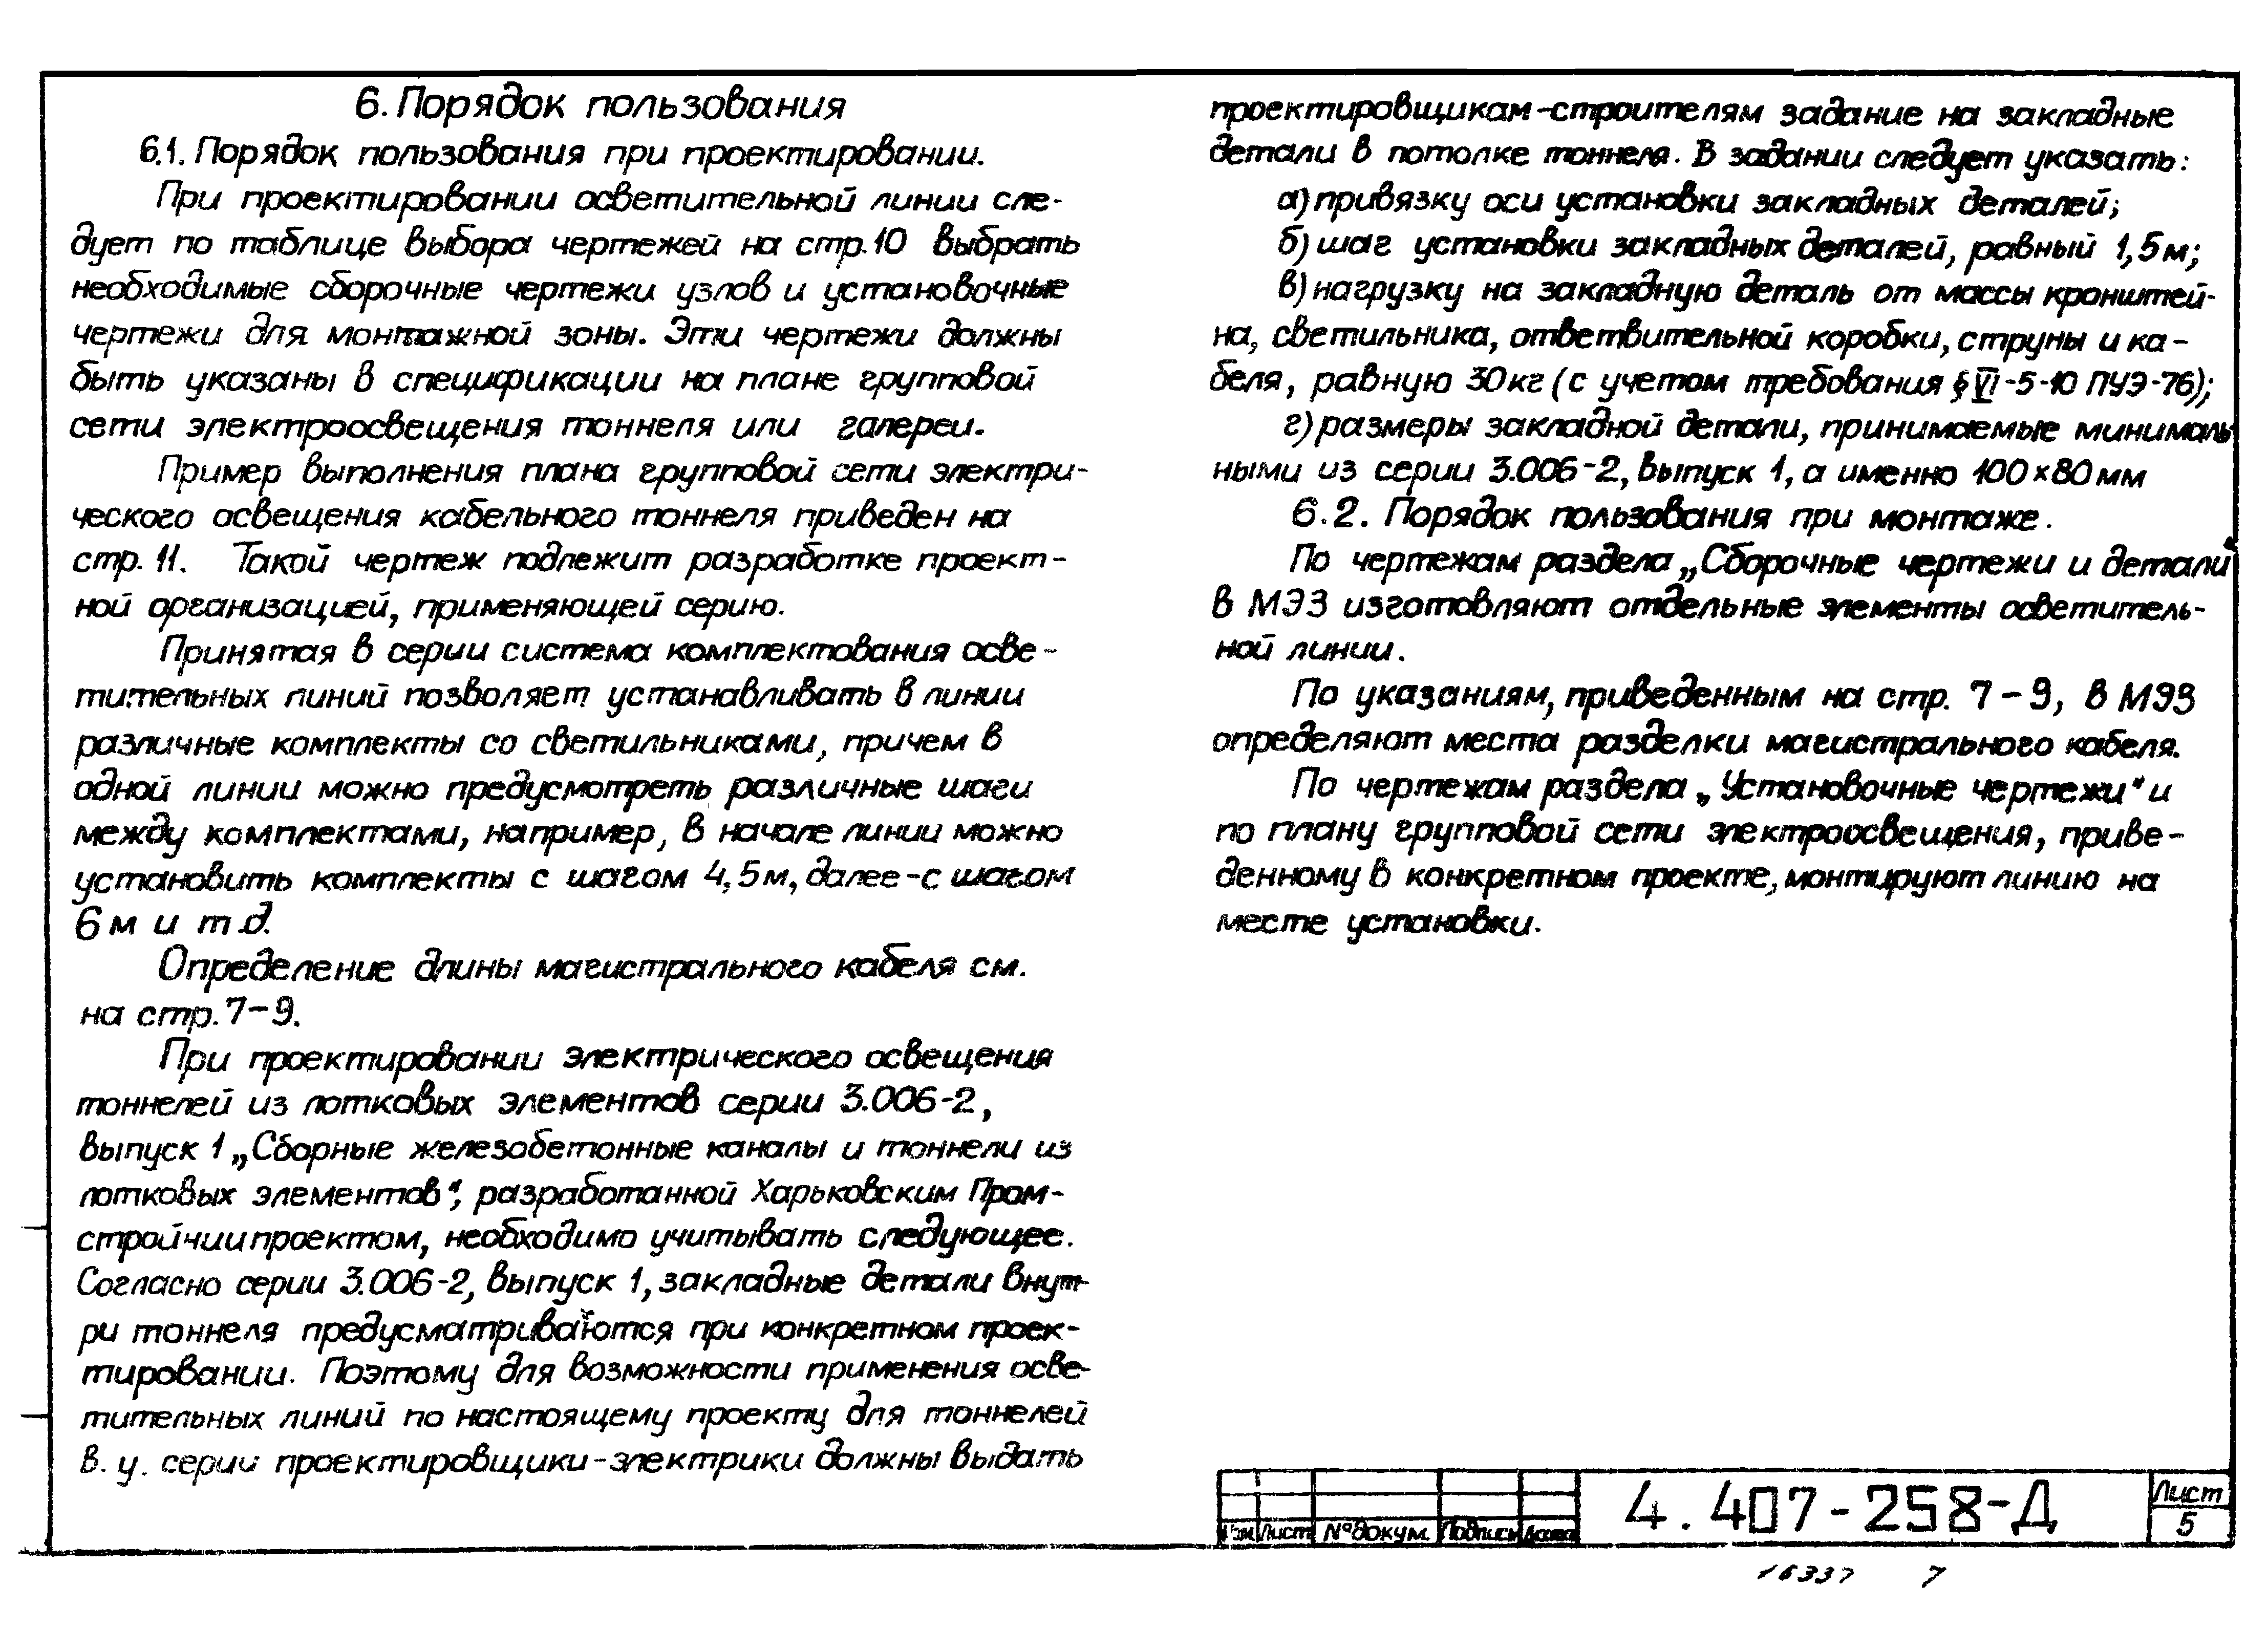 6. Порядок пользования
6.1. Порядок пользования при проектировании.
При проектировании осветительной линии сле-
дует по таблице выбора чертежей на стр. 10 выбрать
необходимые сборочные чертежи узлов и установочные
чертежи для монтажной зоны. Эти чертежи должны
быть указаны в спецификации на плане групповой
сети электроосвещения тоннеля или галереи.
Пример выполнения плана групповой сети электри-
ческого освещения кабельного тоннеля приведен на
стр. 11. Такой чертеж подлежит разработке проект-
ной организацией, применяющей серию.
Принятая в серии система комплектования осве-
тительных линий позволяет устанавливать в линии
различные комплекты со светильниками, причем в
одной линии можно предусмотреть различные шаги
между комплектами, например, в начале линии можно
установить комплекты с шагом 4,5м, далее-с шагом
6м и т.д.
Определение длины магистрального кабеля см.
на стр. 7-9.
При проектировании электрического освещения
тоннелей из лотковых элементов серии 3.006-2,
выпуск 1 „Сборные железобетонные каналы и тоннели из
лотковых элементов", разработанной Харьковским Пром-
стройниипроектом, необходимо учитывать следующее.
Согласно серии 3.006-2, выпуск 1, закладные детали внут-
ри тоннеля предусматриваются при конкретном проек-
тировании. Поэтому для возможности применения осве-
тительных линий по настоящему проекту для тоннелей
в. у. серии проектировщики-электрики должны выдать
проектировщикам-строителям задание на закладные
детали в потолке тоннеля. В задании следует указать:
а) привязку оси установки закладных деталей;
б) шаг установки закладных деталей, равный 1,5м;
в) нагрузку на закладную деталь от массы кронштей-
на, светильника, ответвительной коробки, струны и ка-
беля, равную 30кг (с учетом требования § VI-5-10 ПУЭ-76);
г) размеры закладной детали, принимаемые минималь
ными из серии 3.006-2, выпуск 1, а именно 100×80мм
6.2. Порядок пользования при монтаже.
По чертежам раздела „Сборочные чертежи и детали"
в МЭЗ изготовляют отдельные элементы осветитель-
ной линии.
По указаниям, приведенным на стр. 7-9, в МЭЗ
определяют места разделки магистрального кабеля.
По чертежам раздела „Установочные чертежи" и
по плану групповой сети электроосвещения, приве-
денному в конкретном проекте, монтируют линию на
месте установки.
Изм Лист № докум. Подпись Дата
4.407-258-Д
Лист
5
16337 7